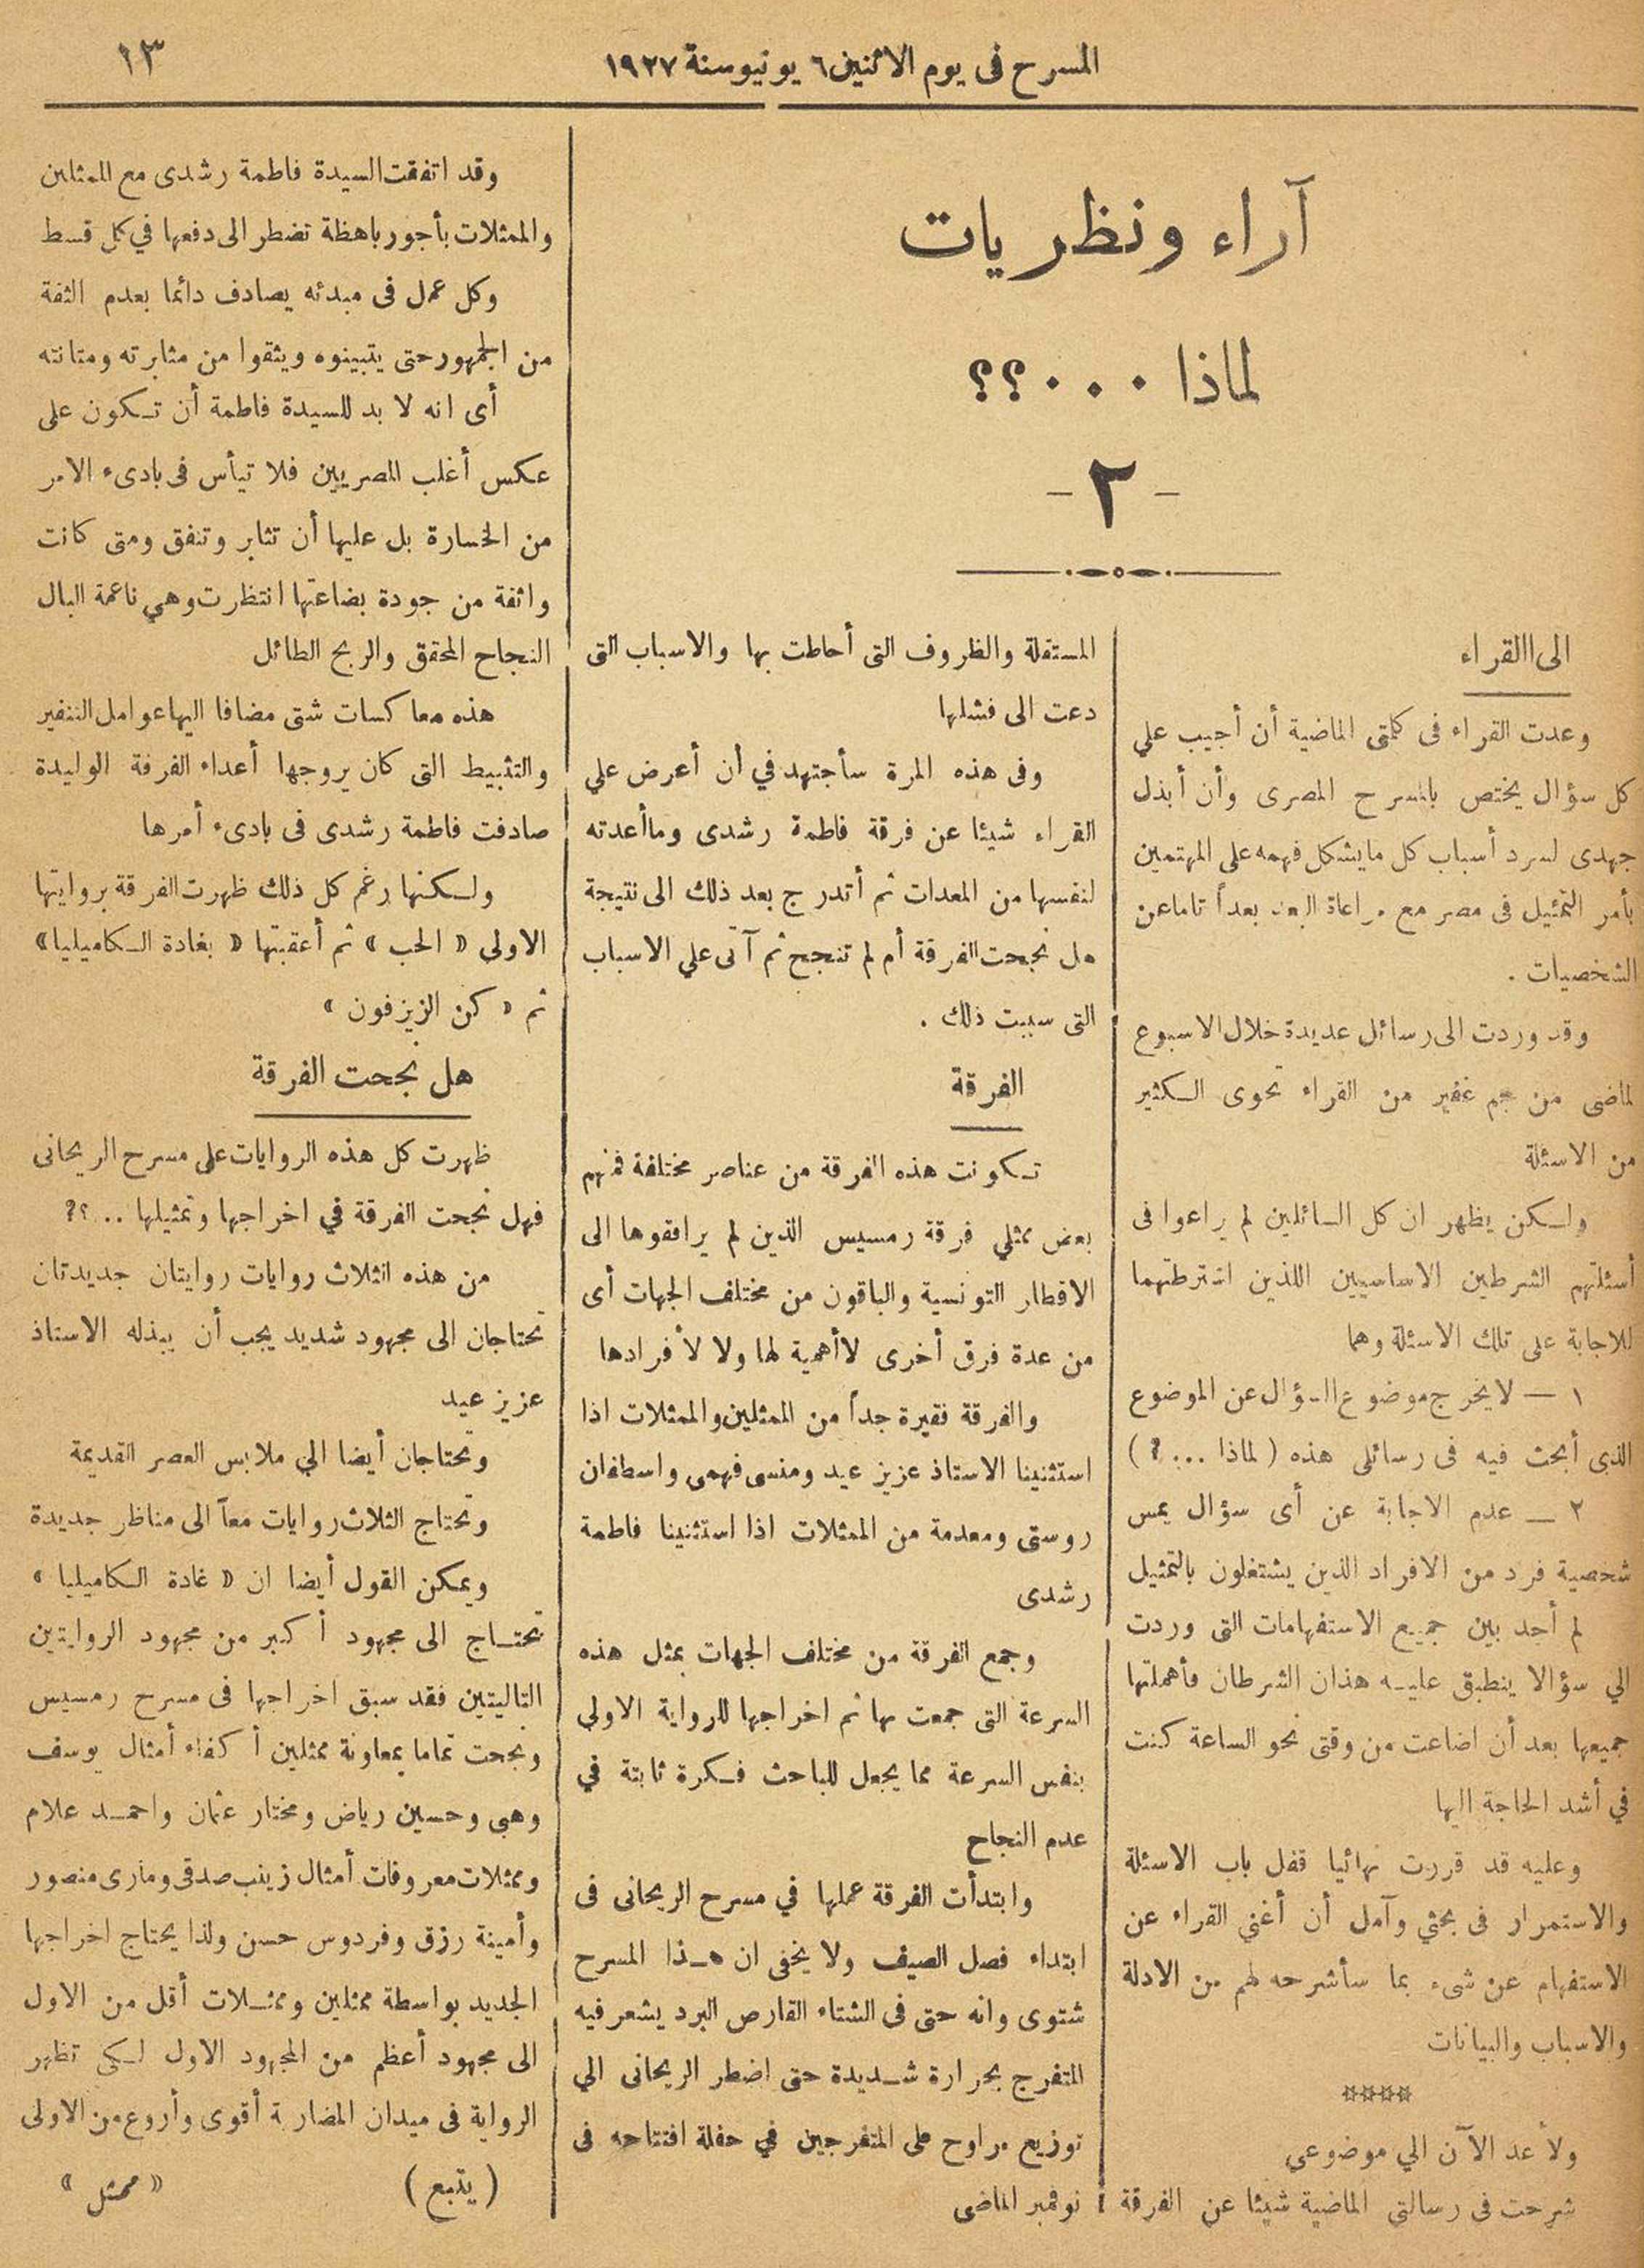 المسرح فى يوم الاثنين ٦ يونيو سنة ١٩٢٧
١٣
آراء ونظريات
لماذا ٠٠٠؟؟
- ٢ -
الى االقراء
وعدت القراء فى كلمتى الماضية أن أجيب علي
كل سؤال يختص بالمسرح المصرى وأن أبذل
جهدى لسرد أسباب كل مايشكل فهمه على المهتمين
بأمر التمثيل فى مصر مع مراعاة البعد بعداً تاما عن
الشخصيات .
وقد وردت الى رسائل عديدة خلال الاسبوع
لماضى من جم غفير من القراء تحوى الكثير
من الاسئلة
ولكن يظهر ان كل السائلين لم يراعوا فى
أسئلتهم الشرطين الاساسيين اللذين اشترطتهما
للاجابة على تلك الاسئلة وهما
١ — لايخرج موضوع السؤال عن الموضوع
الذى أبحث فيه فى رسائلى هذه ( لماذا ...؟ )
٢ — عدم الاجابة عن أى سؤال يمس
شخصية فرد من الافراد الذين يشتغلون بالتمثيل
لم أجد بين جميع الاستفهامات التى وردت
الي سؤالا ينطبق عليه هذان الشرطان فأهملتها
جميعها بعد أن اضاعت من وقتى نحو الساعة كنت
في أشد الحاجة اليها
وعليه قد قررت نهائيا قفل باب الاسئلة
والاستمرار فى بحثي وآمل أن أغني القراء عن
الاستفهام عن شىء بما سأشرحه لهم من الادلة
والاسباب والبيانات
☆☆☆☆
ولأعد الآن الي موضوعي
شرحت فى رسالتي الماضية شيئا عن الفرقة
المستقلة والظروف التى أحاطت بها والاسباب التى
دعت الى فشلها
وفى هذه المرة سأجتهد في أن أعرض علي
القراء شيئا عن فرقة فاطمة رشدى وماأعدته
لنفسها من المعدات ثم أتدرج بعد ذلك الى نتيجة
هل نجحت الفرقة أم لم تنجح ثم آتى علي الاسباب
التى سببت ذلك .
الفرقة
تكونت هذه الفرقة من عناصر مختلفة فمنهم
بعض ممثلي فرقة رمسيس الذين لم يرافقوها الى
الاقطار التونسية والباقون من مختلف الجهات أى
من عدة فرق أخرى لاأهمية لها ولا لأفرادها
والفرقة فقيرة جداً من الممثلين والممثلات اذا
استثنينا الاستاذ عزيز عيد ومنسى فهمى واسطفان
روستى ومعدمة من الممثلات اذا استثنينا فاطمة
رشدى
وجمع الفرقة من مختلف الجهات بمثل هذه
السرعة التى جمعت بها ثم اخراجها للرواية الاولي
بنفس السرعة مما يجعل للباحث فكرة ثابتة في
عدم النجاح
وابتدأت الفرقة عملها في مسرح الريحانى فى
ابتداء فصل الصيف ولا يخفى ان هذا المسرح
شتوى وانه حتى فى الشتاء القارص البرد يشعر فيه
المتفرج بحرارة شديدة حتى اضطر الريحانى الي
توزيع مراوح على المتفرجين في حفلة افتتاحه فى
نوفمبر الماضى
وقد اتفقت السيدة فاطمة رشدى مع الممثلين
والممثلات بأجور باهظة تضطر الى دفعها في كل قسط
وكل عمل فى مبدئه يصادف دائما بعدم الثقة
من الجمهور حتى يتبينوه ويثقوا من مثابرته ومتانته
أى انه لا بد للسيدة فاطمة أن تكون على
عكس أغلب المصريين فلا تيأس فى بادىء الامر
من الخسارة بل عليها أن تثابر وتنفق ومتى كانت
واثقة من جودة بضاعتها انتظرت وهي ناعمة البال
النجاح المحقق والربح الطائل
هذه معاكسات شتى مضافا اليها عوامل التنفير
والتثبيط التى كان يروجها أعداء الفرقة الوليدة
صادفت فاطمة رشدى فى بادىء أمرها
ولكنها رغم كل ذلك ظهرت الفرقة بروايتها
الاولى « الحب » ثم أعقبتها « بغادة الكاميليا »
ثم « كن الزيزفون »
هل نجحت الفرقة
ظهرت كل هذه الروايات على مسرح الريحانى
فهل نجحت الفرقة في اخراجها وتمثيلها ..؟؟
من هذه الثلاث روايات روايتان جديدتان
تحتاجان الى مجهود شديد يجب أن يبذله الاستاذ
عزيز عيد
وتحتاجان أيضا الي ملابس العصر القديمة
وتحتاج الثلاث روايات معاً الى مناظر جديدة
ويمكن القول أيضا ان « غادة الكاميليا »
تحتاج الى مجهود أكبر من مجهود الروايتين
التاليتين فقد سبق اخراجها فى مسرح رمسيس
ونجحت تماما بمعاونة ممثلين أكفاء أمثال يوسف
وهبى وحسين رياض ومختار عثمان واحمد علام
وممثلات معروفات أمثال زينب صدقى ومارى منصور
وأمينة رزق وفردوس حسن ولذا يحتاج اخراجها
الجديد بواسطة ممثلين وممثلات أقل من الاول
الى مجهود أعظم من المجهود الاول لكى تظهر
الرواية فى ميدان المضاربة أقوى وأروع من الاولى
( يتبع ) « ممثل »